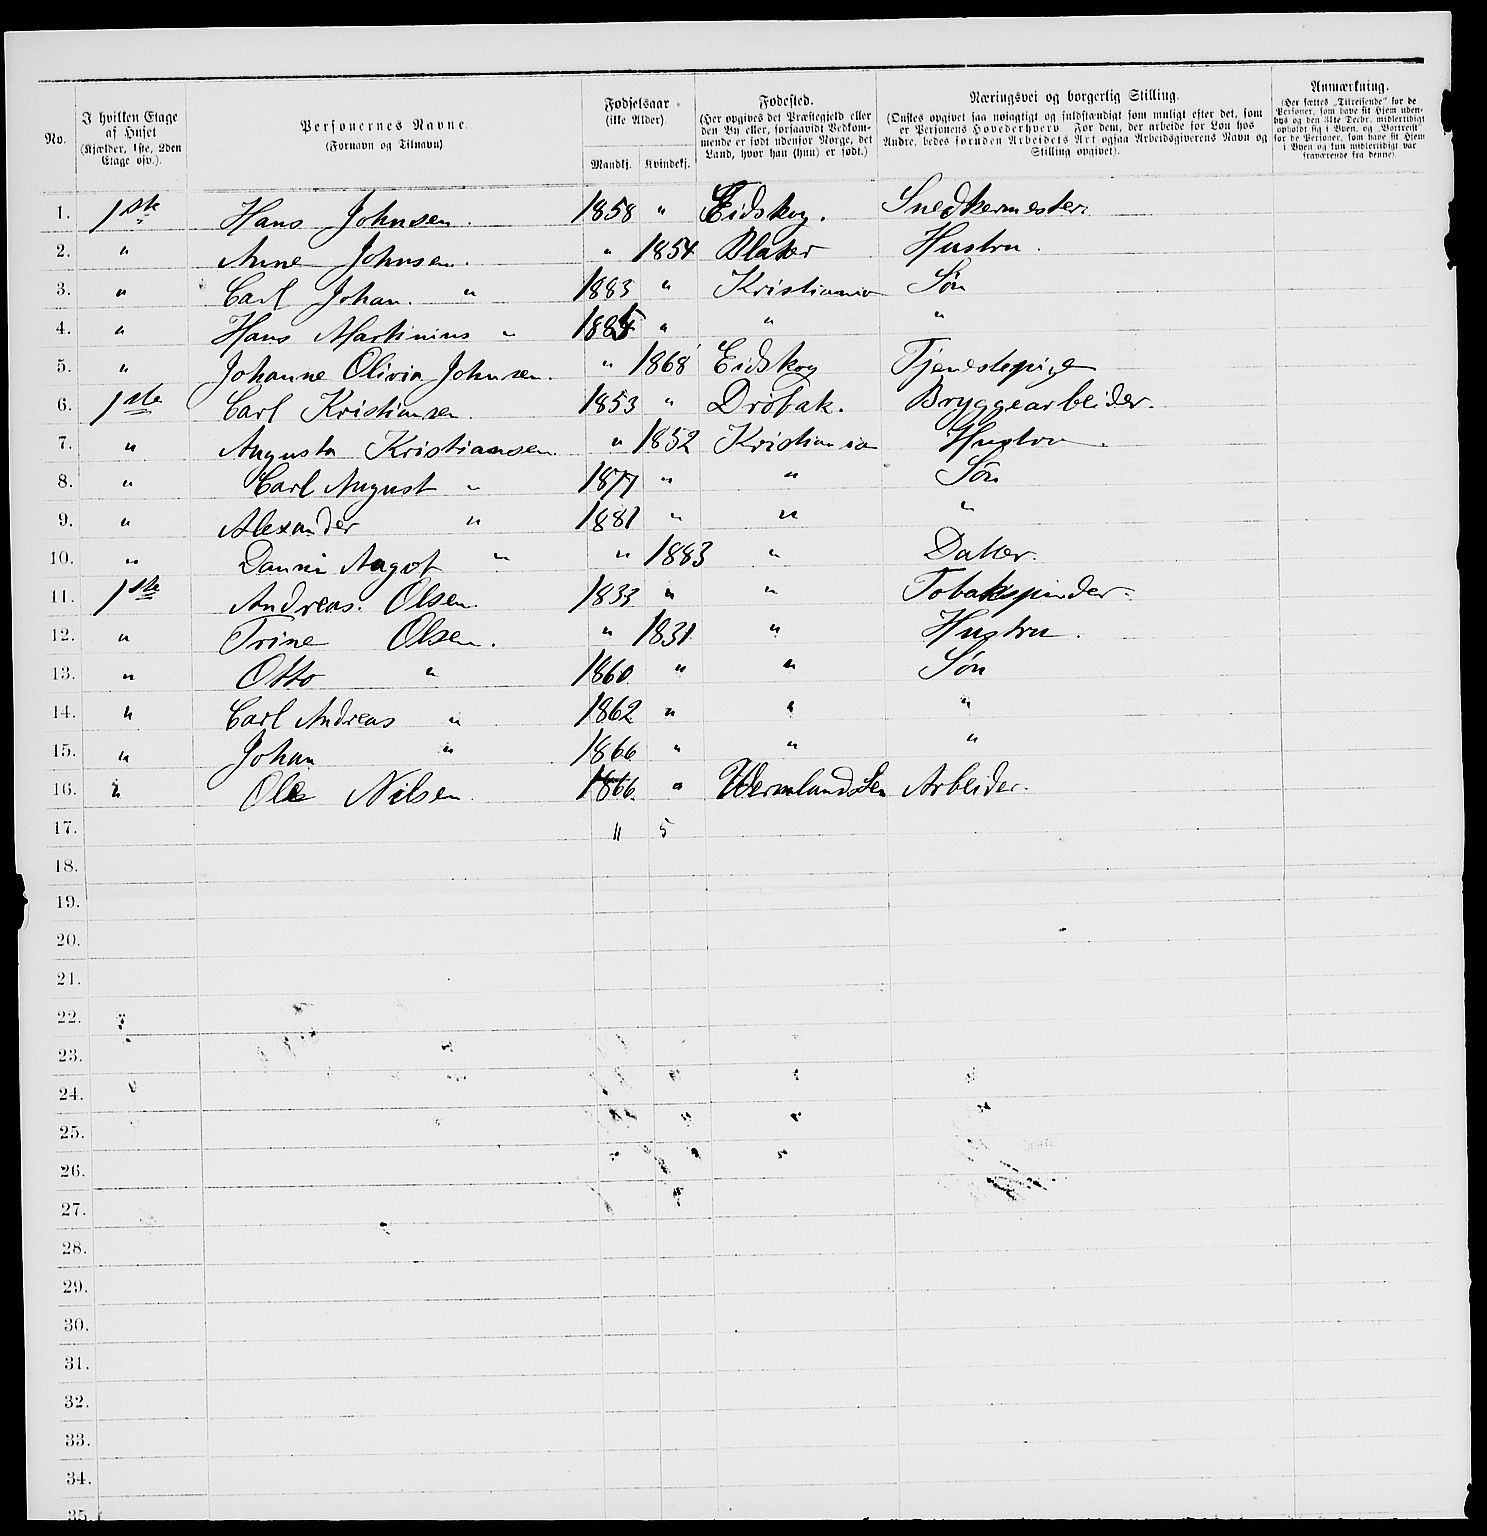 No.
I hvilken Etage af Huset (Kjælder, 1ste, 2den Etage osv.).
Personernes Navne. (Fornavn og Tilnavn)
Fødselsaar (ikke Alder)
Mandkj. Kvindekj.
Fødested. (Her opgives det Præstegjeld eller den By eller, forsaavidt Vedkommende er født udenfor Norge, det Land, hvor han (hun) er født.)
Næringsvei og borgerlig Stilling. (Ønskes opgivet saa nøiagtigt og fuldstændigt som muligt efter det, som er Personens Hovederhverv. For dem, der arbeide for Løn hos Andre, bedes foruden Arbeidets Art ogsaa Arbeidsgiverens Navn og Stilling opgivet).
Anmærkning. (Her sættes „Tilreisende" for de Personer, som have sit Hjem udenbys og den 31te Decbr. midlertidigt opholdt sig i Byen, og „Bortreist" for de Personer, som have sit Hjem i Byen og kun midlertidigt var fraværende fra denne).
1. 1ste Hans Johnsen. 1858 " Eidskog. Snedkermester.
2. " Anne Johnsen. " 1854 Blaker Hustru.
3. " Carl Johan. " 1883 " Kristiania Søn
4. " Hans Martinius " 1885 " " "
5. " Johanne Olivia Johnsen. " 1868 Eidskog Tjenestepige
6. 1ste Carl Kristiansen. 1853 " Drøbak. Bryggearbeider.
7. " Augusta Kristiansen. " 1852 Kristiania Hustru.
8. " Carl August " 1877 " " Søn
9. " Alexander " 1881 " " "
10. " Danni Aagot " " 1883 " Datter.
11. 1ste Andreas. Olsen. 1833 " " Tobakspinder.
12. " Trine Olsen. " 1831 " Hustru.
13. " Otto " 1860 " " Søn
14. " Carl Andreas " 1862 " " "
15. " Johan " 1866 " " "
16. " Ole Nilsen. 1866. " Wermland Arbeider.
17. 11 5
18.
19.
20.
21.
22.
23.
24.
25.
26.
27.
28.
29.
30.
31.
32.
33.
34.
35.